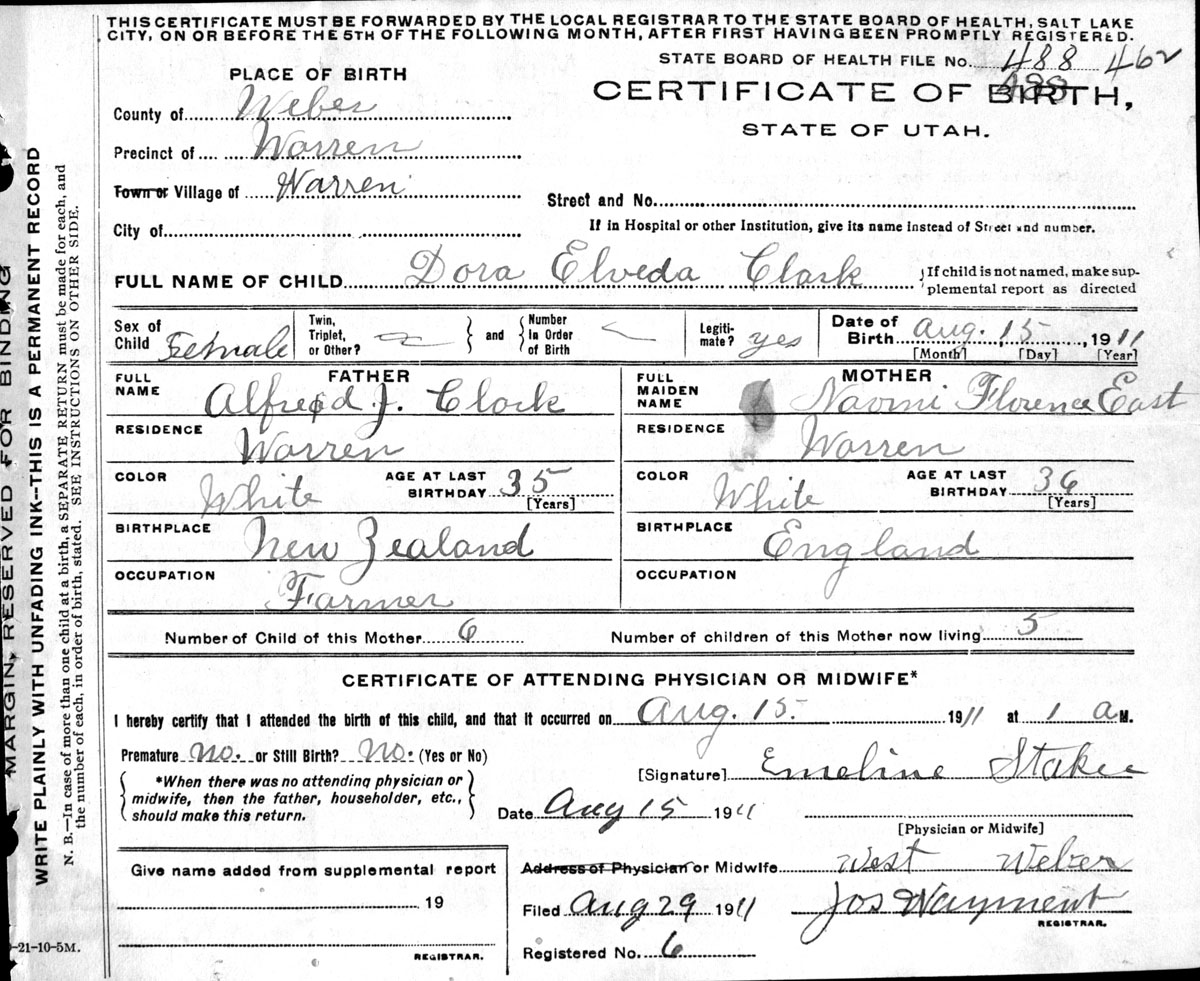 THIS CERTIFICATE MUST BE FORWARDED BY THE LOCAL REGISTRAR TO THE STATE BOARD OF HEALTH, SALT LAKE
CITY, ON OR BEFORE THE 5TH OF THE FOLLOWING MONTH, AFTER FIRST HAVING BEEN PROMPTLY REGISTERED.
STATE BOARD OF HEALTH FILE No. 488 462
488
PLACE OF BIRTH
CERTIFICATE OF BIRTH,
STATE OF UTAH.
County of Weber
Precinct of Warren
Town or Village of Warren
Street and No.
City of
If in Hospital or other Institution, give its name instead of Street and number.
FULL NAME OF CHILD Dora Elveda Clark
If child is not named, make sup-
plemental report as directed
Sex of Child Female
Twin, Triplet, or Other?
and
Number in Order of Birth
Legiti-mate? yes
Date of Birth Aug. 15, 1911
[Month] [Day] [Year]
FATHER
FULL NAME Alfred J. Clark
RESIDENCE Warren
COLOR White AGE AT LAST BIRTHDAY 35 [Years]
BIRTHPLACE New Zealand
OCCUPATION Farmer
MOTHER
FULL MAIDEN NAME Naomi Florence East
RESIDENCE Warren
COLOR White AGE AT LAST BIRTHDAY 36 [Years]
BIRTHPLACE England
OCCUPATION
Number of Child of this Mother 6 Number of children of this Mother now living 5
CERTIFICATE OF ATTENDING PHYSICIAN OR MIDWIFE*
I hereby certify that I attended the birth of this child, and that it occurred on Aug. 15. 1911 at 1 a M.
Premature no. or Still Birth? No. (Yes or No)
*When there was no attending physician or
midwife, then the father, householder, etc.,
should make this return.
[Signature] Emeline Staker
Date Aug 15 1911
[Physician or Midwife]
Address of Physician or Midwife West Weber
Filed Aug 29 1911 Jos Wayment
REGISTRAR.
Registered No. 6
Give name added from supplemental report
19
REGISTRAR.
-21-10-5M.
MARGIN, RESERVED FOR BINDING
WRITE PLAINLY WITH UNFADING INK--THIS IS A PERMANENT RECORD
N. B.—In case of more than one child at a birth, a SEPARATE RETURN must be made for each, and
the number of each, in order of birth, stated. SEE INSTRUCTIONS ON OTHER SIDE.